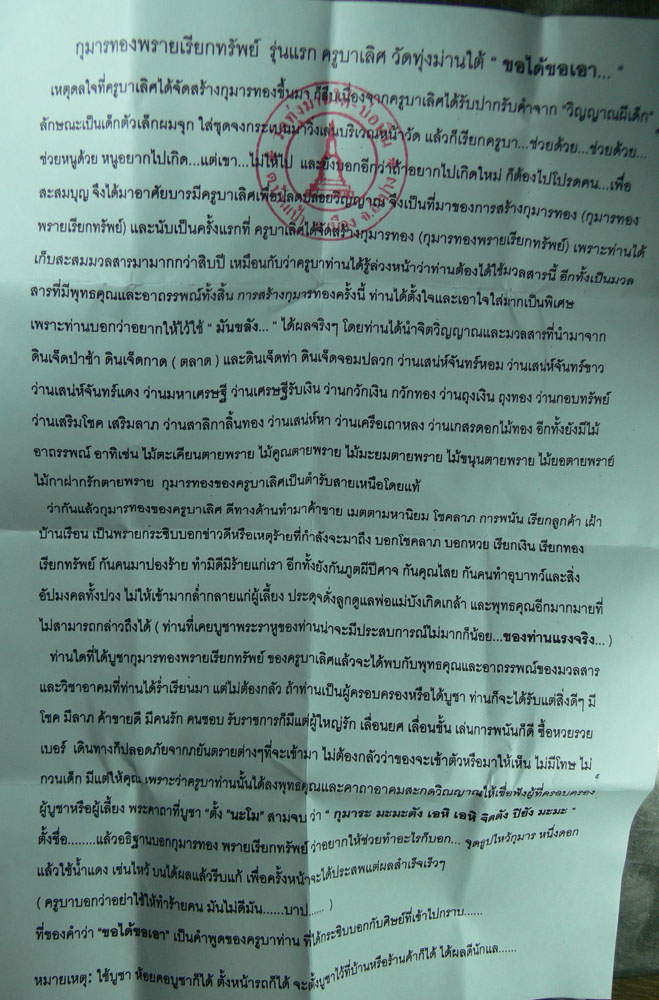 กุมารทองพรายเรียกทรัพย์ รุ่นแรก ครูบาเลิศ วัดทุ่งม่านใต้ “ ขอได้ขอเอา... ”
เหตุดลใจที่ครูบาเลิศได้จัดสร้างกุมารทองขึ้นมา ก็สืบเนื่องจากครูบาเลิศได้รับปากรับคำจาก “วิญญาณผีเด็ก”
ลักษณะเป็นเด็กตัวเล็กผมจุก ใส่ชุดจงกระเบนมาวิ่งเล่นบริเวณหน้าวัด แล้วก็เรียกครูบา...ช่วยด้วย...ช่วยด้วย...
ช่วยหนูด้วย หนูอยากไปเกิด...แต่เขา...ไม่ให้ไป และยังบอกอีกว่าถ้าอยากไปเกิดใหม่ ก็ต้องไปโปรดคน...เพื่อ
สะสมบุญ จึงได้มาอาศัยบารมีครูบาเลิศเพื่อปลดปล่อยวิญญาณ จึงเป็นที่มาของการสร้างกุมารทอง (กุมารทอง
พรายเรียกทรัพย์) และนับเป็นครั้งแรกที่ ครูบาเลิศได้จัดสร้างกุมารทอง (กุมารทองพรายเรียกทรัพย์) เพราะท่านได้
เก็บสะสมมวลสารมามากกว่าสิบปี เหมือนกับว่าครูบาท่านได้รู้ล่วงหน้าว่าท่านต้องได้ใช้มวลสารนี้ อีกทั้งเป็นมวล
สารที่มีพุทธคุณและอาถรรพณ์ทั้งสิ้น การสร้างกุมารทองครั้งนี้ ท่านได้ตั้งใจและเอาใจใส่มากเป็นพิเศษ
เพราะท่านบอกว่าอยากให้ไว้ใช้ “ มันขลัง... ” ได้ผลจริงๆ โดยท่านได้นำจิตวิญญาณและมวลสารที่นำมาจาก
ดินเจ็ดป่าช้า ดินเจ็ดกาด ( ตลาด ) และดินเจ็ดท่า ดินเจ็ดจอมปลวก ว่านเสน่ห์จันทร์หอม ว่านเสน่ห์จันทร์ขาว
ว่านเสน่ห์จันทร์แดง ว่านมหาเศรษฐี ว่านเศรษฐีรับเงิน ว่านกวักเงิน กวักทอง ว่านถุงเงิน ถุงทอง ว่านกอบทรัพย์
ว่านเสริมโชค เสริมลาภ ว่านสาลิกาลิ้นทอง ว่านเสน่ห์หา ว่านเครือเถาหลง ว่านเกสรดอกไม้ทอง อีกทั้งยังมีไม้
อาถรรพณ์ อาทิเช่น ไม้ตะเคียนตายพราย ไม้คูณตายพราย ไม้มะยมตายพราย ไม้ขนุนตายพราย ไม้ยอตายพราย์
ไม้กาฝากรักตายพราย กุมารทองของครูบาเลิศเป็นตำรับสายเหนือโดยแท้
ว่ากันแล้วกุมารทองของครูบาเลิศ ดีทางด้านทำมาค้าขาย เมตตามหานิยม โชคลาภ การพนัน เรียกลูกค้า เฝ้า
บ้านเรือน เป็นพรายกระซิบบอกข่าวดีหรือเหตุร้ายที่กำลังจะมาถึง บอกโชคลาภ บอกหวย เรียกเงิน เรียกทอง
เรียกทรัพย์ กันคนมาปองร้าย ทำมิดีมิร้ายแก่เรา อีกทั้งยังกันภูตผีปีศาจ กันคุณไสย กันคนทำอุบาทว์และสิ่ง
อัปมงคลทั้งปวง ไม่ให้เข้ามากล้ำกลายแก่ผู้เลี้ยง ประดุจดั่งลูกดูแลพ่อแม่บังเกิดเกล้า และพุทธคุณอีกมากมายที่
ไม่สามารถกล่าวถึงได้ ( ท่านที่เคยบูชาพระราหูของท่านน่าจะมีประสบการณ์ไม่มากก็น้อย...ของท่านแรงจริง... )
ท่านใดที่ได้บูชากุมารทองพรายเรียกทรัพย์ ของครูบาเลิศแล้วจะได้พบกับพุทธคุณและอาถรรพณ์ของมวลสาร
และวิชาอาคมที่ท่านได้ร่ำเรียนมา แต่ไม่ต้องกลัว ถ้าท่านเป็นผู้ครอบครองหรือได้บูชา ท่านก็จะได้รับแต่สิ่งดีๆ มี
โชค มีลาภ ค้าขายดี มีคนรัก คนชอบ รับราชการก็มีแต่ผู้ใหญ่รัก เลื่อนยศ เลื่อนขั้น เล่นการพนันก็ดี ซื้อหวยรวย
เบอร์ เดินทางก็ปลอดภัยจากภยันตรายต่างๆที่จะเข้ามา ไม่ต้องกลัวว่าของจะเข้าตัวหรือมาให้เห็น ไม่มีโทษ ไม่
กวนเด็ก มีแต่ให้คุณ เพราะว่าครูบาท่านนั้นได้ลงพุทธคุณและคาถาอาคมสะกดวิญญาณให้เชื่อฟังผู้ที่ครอบครอง
ผู้บูชาหรือผู้เลี้ยง พระคาถาที่บูชา “ตั้ง “นะโม” สามจบ ว่า “ กุมาระ มะมะตัง เอหิ เอหิ จิตตัง ปิยัง มะมะ ”
ตั้งชื่อ........แล้วอธิฐานบอกกุมารทอง พรายเรียกทรัพย์ ว่าอยากให้ช่วยทำอะไรก็บอก... จุดธูปไหว้กุมาร หนึ่งดอก
แล้วใช้น้ำแดง เซ่นไหว้ บนได้ผลแล้วรีบแก้ เพื่อครั้งหน้าจะได้ประสพแต่ผลสำเร็จเร็วๆ
( ครูบาบอกว่าอย่าใช้ให้ทำร้ายคน มันไม่ดีมัน......บาป...... )
ที่ของคำว่า “ขอได้ขอเอา” เป็นคำพูดของครูบาท่าน ที่ได้กระซิบบอกกับศิษย์ที่เข้าไปกราบ......
หมายเหตุ: ใช้บูชา ห้อยคอบูชาก็ได้ ตั้งหน้ารถก็ได้ จะตั้งบูชาไว้ที่บ้านหรือร้านค้าก็ได้ ได้ผลดีนักแล......